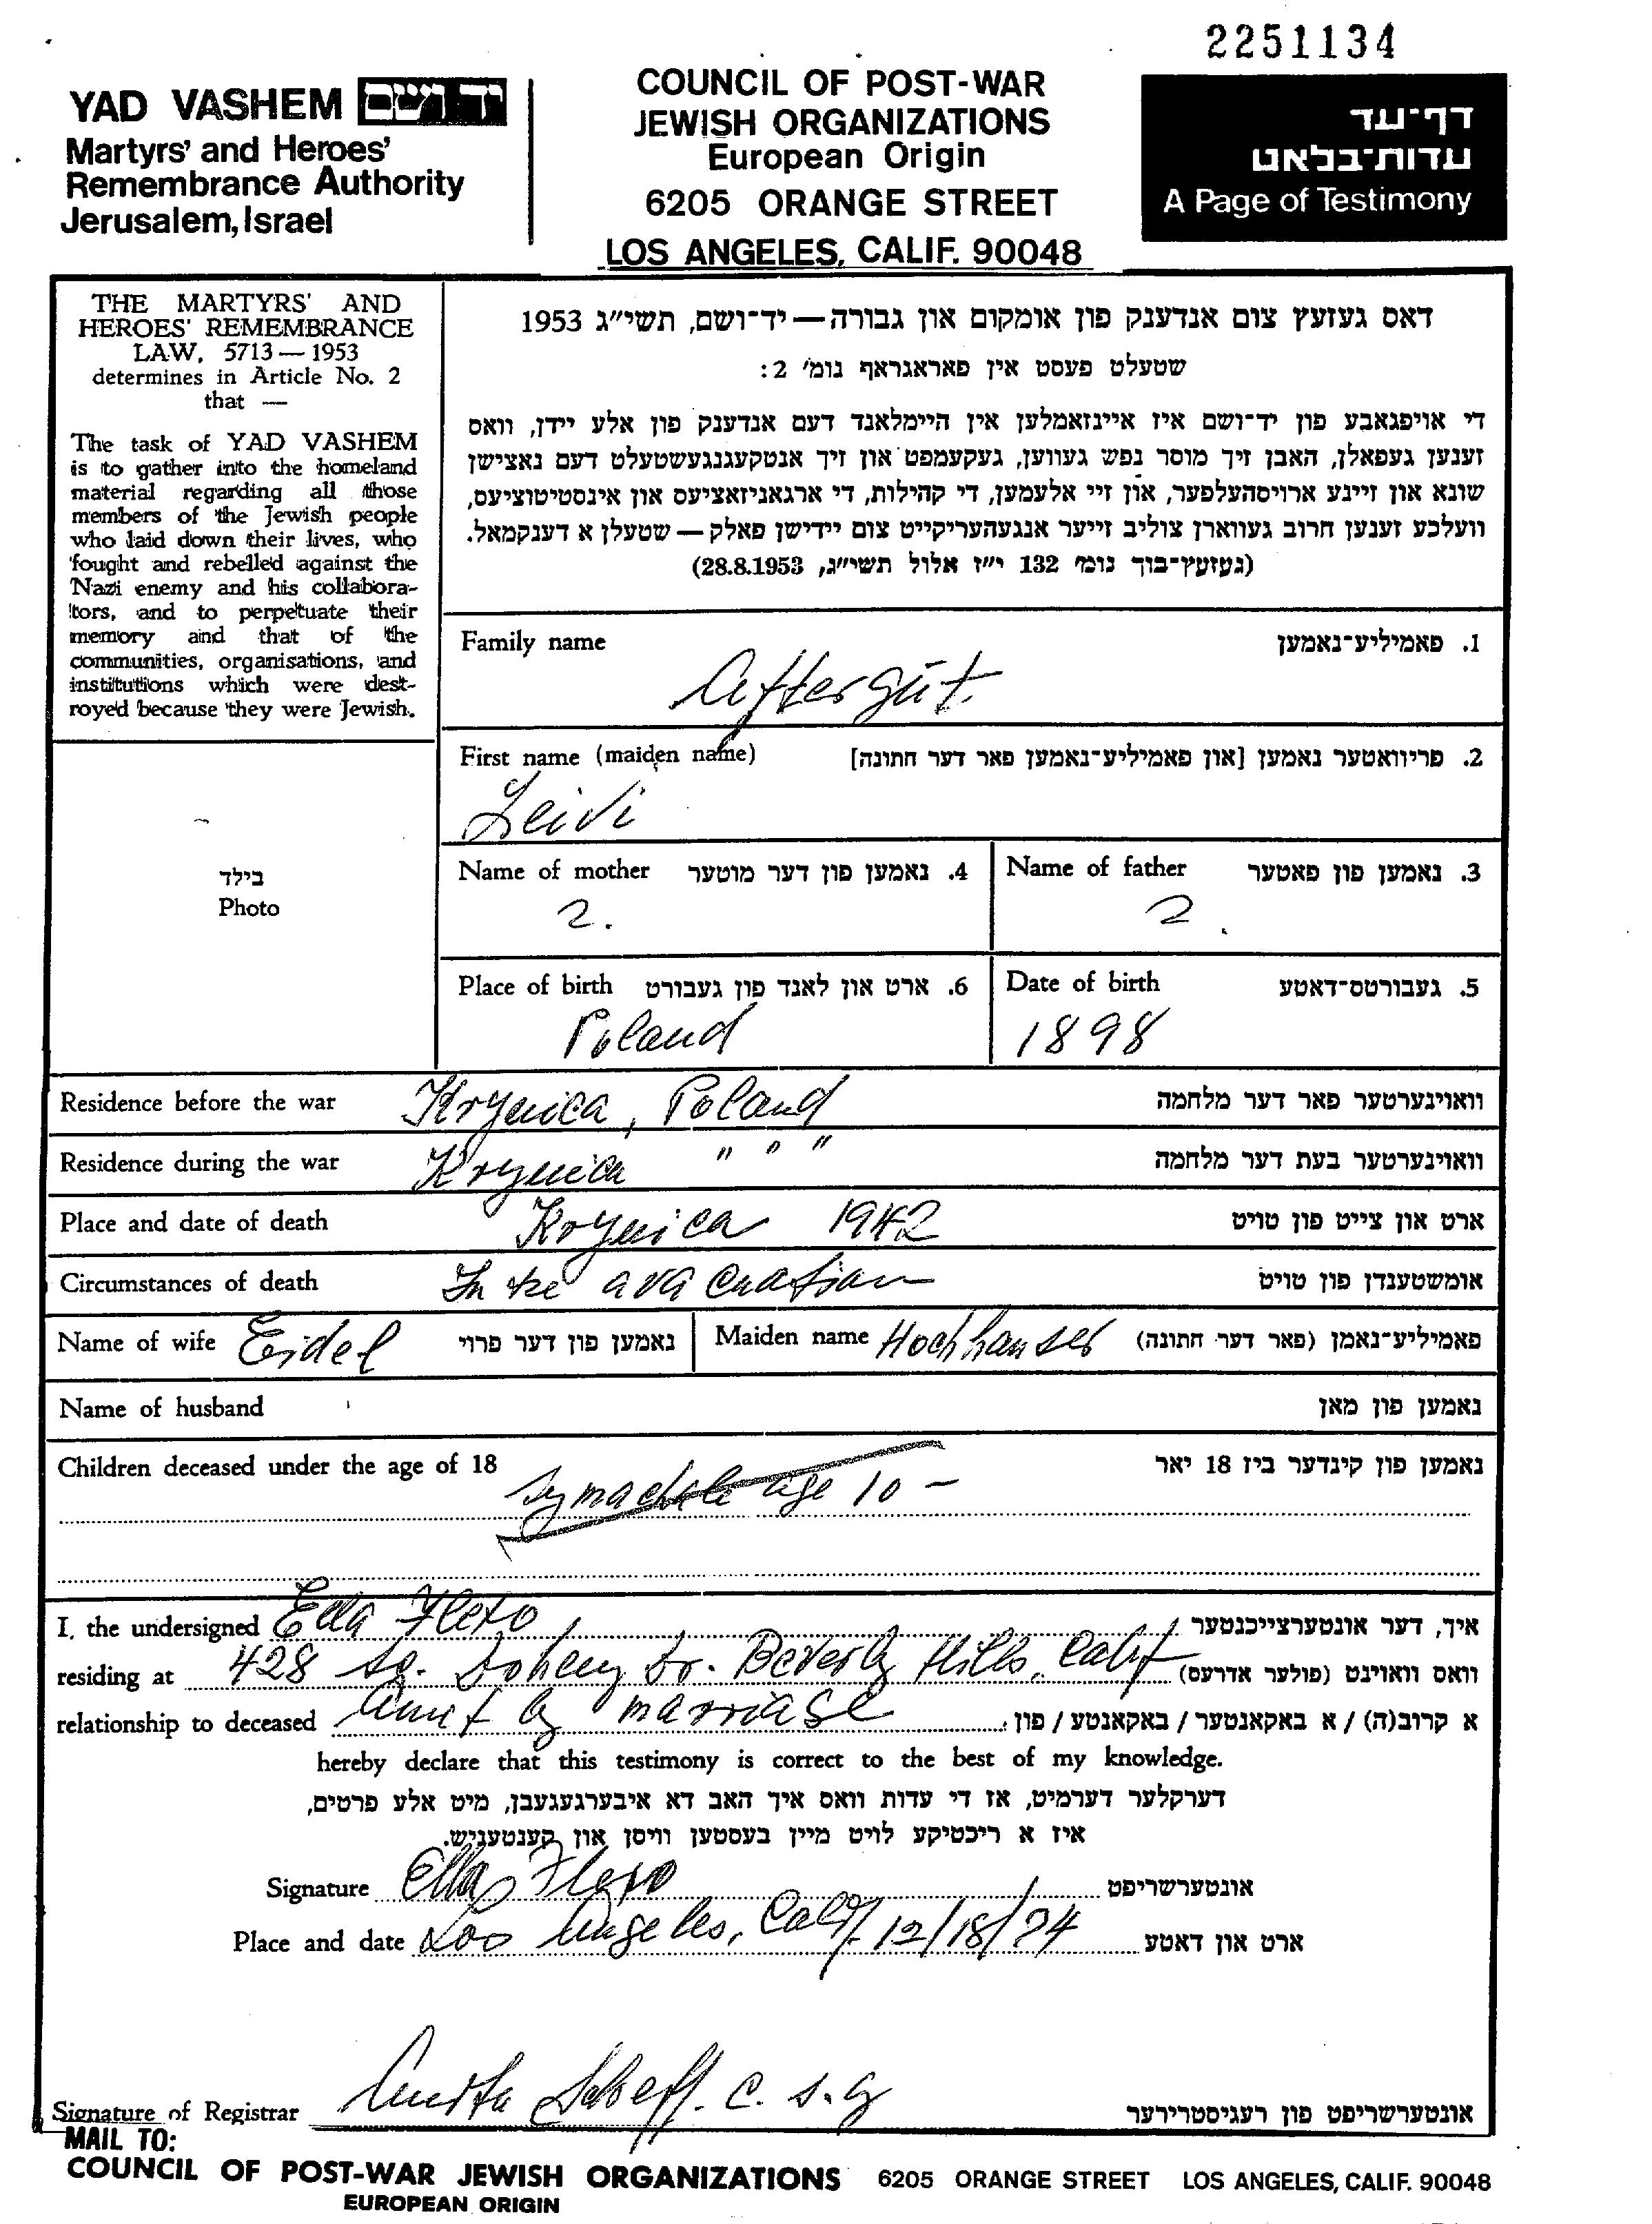 2251134
YAD VASHEM יד ושם
Martyrs' and Heroes'
Remembrance Authority
Jerusalem, Israel
COUNCIL OF POST-WAR
JEWISH ORGANIZATIONS
European Origin
6205 ORANGE STREET
LOS ANGELES, CALIF. 90048
דף-עד
עדות-בלאט
A Page of Testimony
THE MARTYRS' AND
HEROES' REMEMBRANCE
LAW, 5713—1953
determines in Article No. 2
that —
The task of YAD VASHEM
is to gather into the homeland
material regarding all those
members of the Jewish people
who laid down their lives, who
fought and rebelled against the
Nazi enemy and his collabora-
tors, and to perpetuate their
memory and that of the
communities, organisations, and
institutions which were dest-
royed because they were Jewish.
דאס געזעץ צום אנדענק פון אומקום און גבורה — יד-ושם, תשי״ג 1953
שטעלט פעסט אין פאראגראף נומ׳ 2:
די אויפגאבע פון יד-ושם איז איינזאמלען אין היימלאנד דעם אנדענק פון אלע יידן, וואס
זענען געפאלן, האבן זיך מוסר נפש געווען, געקעמפט און זיך אנטקעגנגעשטעלט דעם נאצישן
שונא און זיינע ארויסהעלפער, און זיי אלעמען, די קהילות, די ארגאניזאציעס און אינסטיטוציעס,
וועלכע זענען חרוב געווארן צוליב זייער אנגעהעריקייט צום יידישן פאלק — שטעלן א דענקמאל.
(געזעץ-בוך נומ׳ 132 י״ז אלול תשי״ג, 28.8.1953)
Family name 1. פאמיליע-נאמען
Aftergut.
First name (maiden name) 2. פריוואטער נאמען [און פאמיליע-נאמען פאר דער חתונה]
Leivi
בילד
Photo
Name of mother 4. נאמען פון דער מוטער
?.
Name of father 3. נאמען פון פאטער
?.
Place of birth 6. ארט און לאנד פון געבורט
Poland
Date of birth 5. געבורטס-דאטע
1898
Residence before the war Krynica, Poland וואוינערטער פאר דער מלחמה
Residence during the war Krynica " " " וואוינערטער בעת דער מלחמה
Place and date of death Krynica 1942 ארט און צייט פון טויט
Circumstances of death In the avacuation אומשטענדן פון טויט
Name of wife Eidel נאמען פון דער פרוי
Maiden name Hochhauser פאמיליע-נאמן (פאר דער חתונה)
Name of husband נאמען פון מאן
Children deceased under the age of 18 נאמען פון קינדער ביז 18 יאר
age 10 -
I, the undersigned Ella איך, דער אונטערצייכנטער
residing at 428 So. Doheny Dr. Beverly Hills, Calif וואס וואוינט (פולער אדרעס)
relationship to deceased Aunt by marriase א קרוב(ה) / א באקאנטער / באקאנטע / פון
hereby declare that this testimony is correct to the best of my knowledge.
דערקלער דערמיט, אז די עדות וואס איך האב דא איבערגעגעבן, מיט אלע פרטים,
איז א ריכטיקע לויט מיין בעסטען וויסן און קענטעניש.
Signature Ella אונטערשריפט
Place and date Los Angeles, Calif. 12/18/74 ארט און דאטע
Signature of Registrar אונטערשריפט פון רעגיסטרירער
MAIL TO:
COUNCIL OF POST-WAR JEWISH ORGANIZATIONS 6205 ORANGE STREET LOS ANGELES, CALIF. 90048
EUROPEAN ORIGIN